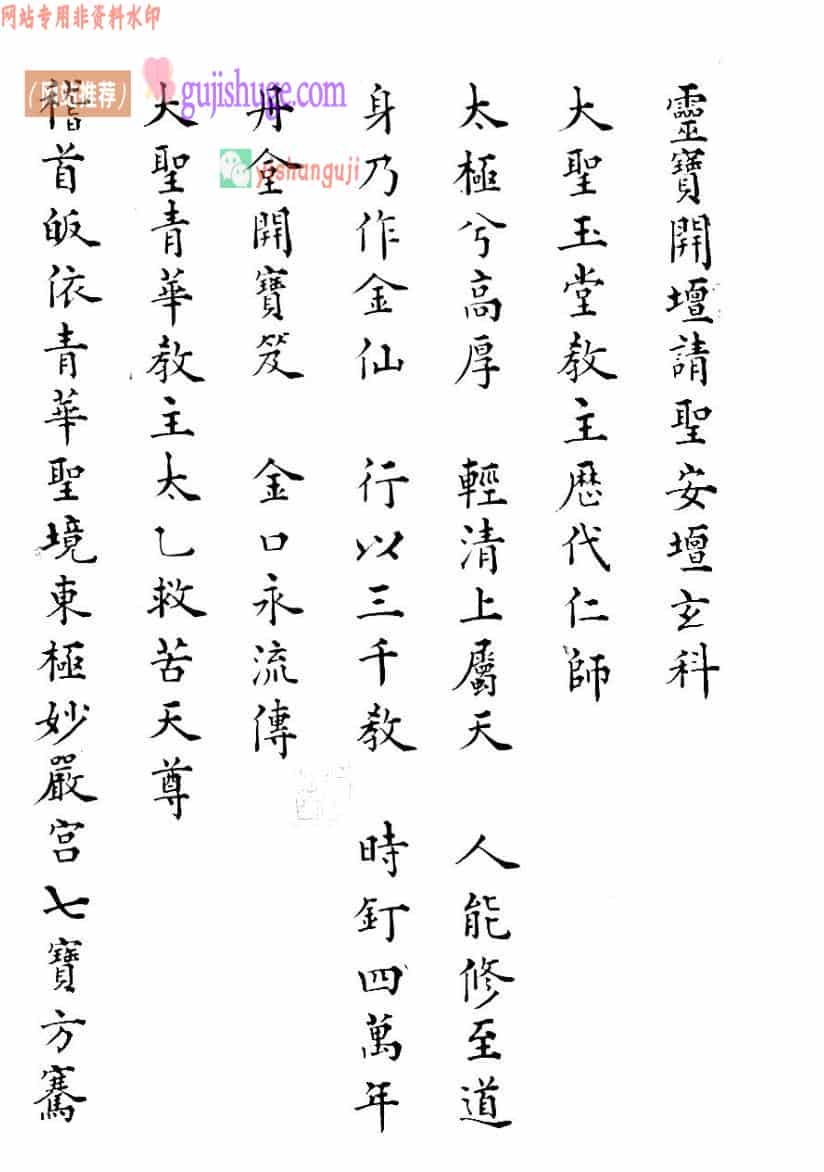 网站专用非资料水印
(网站推荐)
gujishuge.com
yishanguji
靈寶開壇請聖安壇玄科
大聖玉堂教主歷代仁師
太極兮高厚 輕清上屬天 人能修至道
身乃作金仙 行以三千教 時釘四萬年
丹臺開寶笈 金口永流傳
大聖青華教主太乙救苦天尊
稽首皈依青華聖境東極妙嚴宮七寶方騫